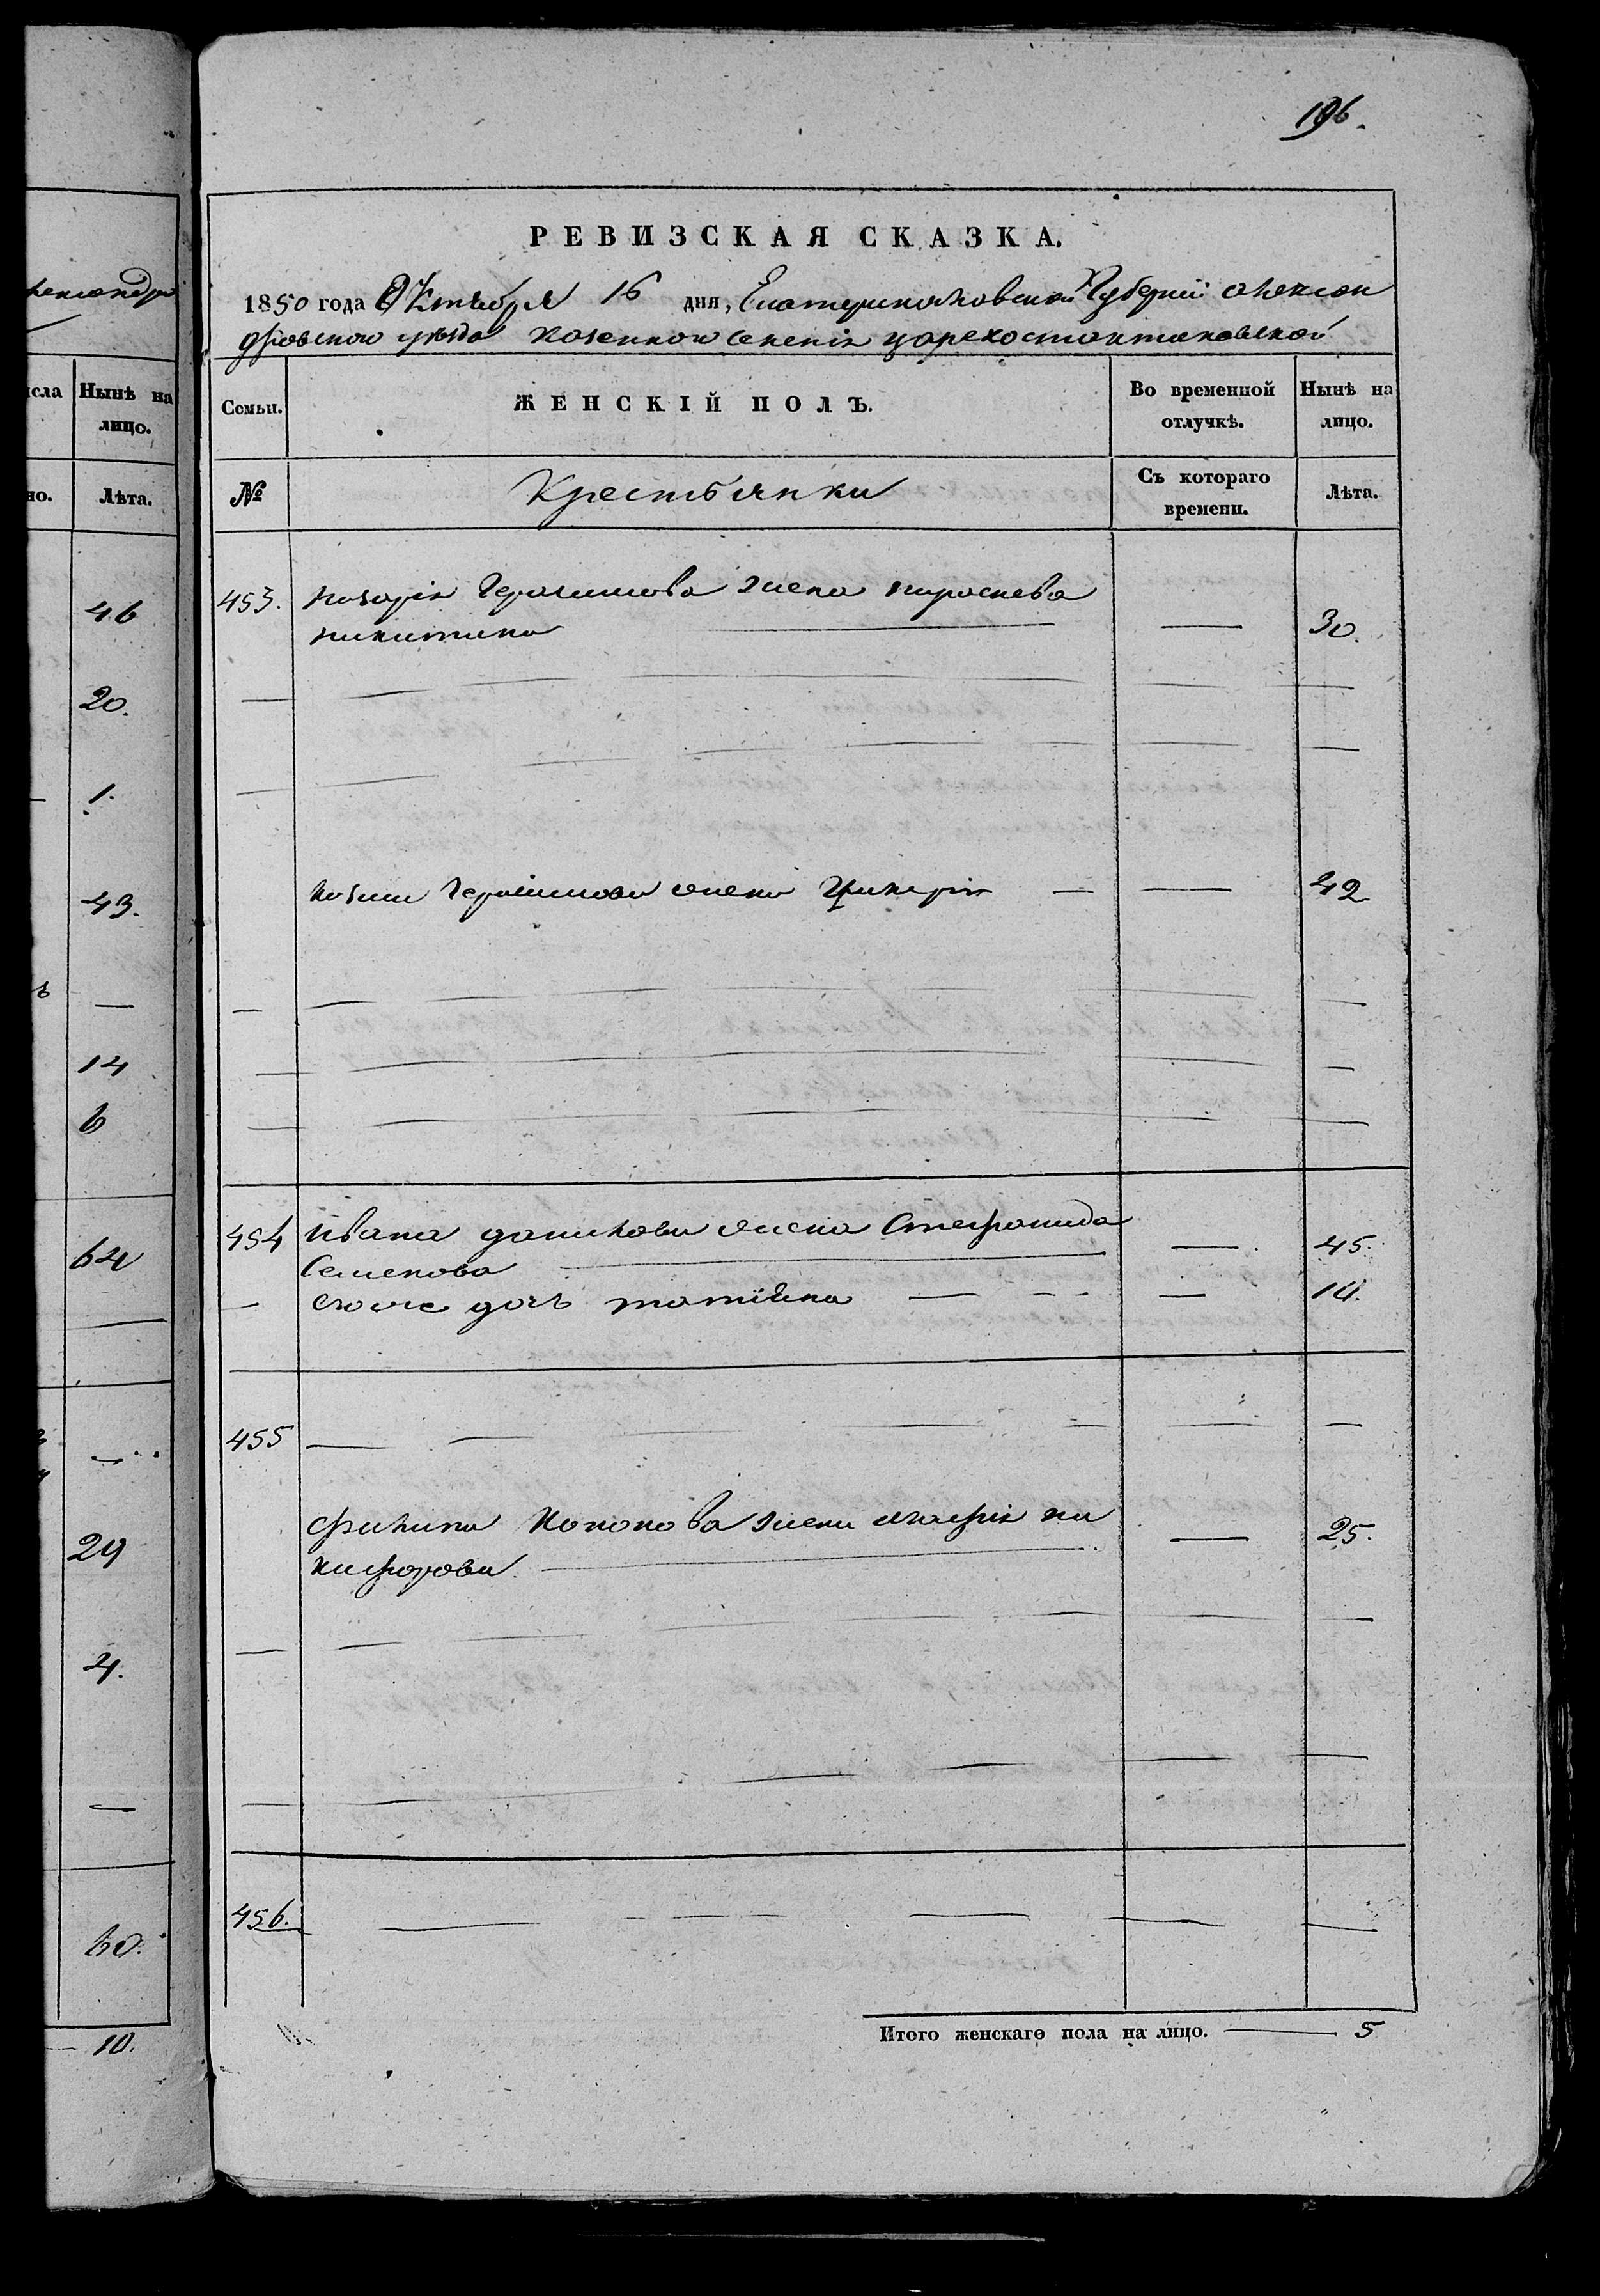 196.
РЕВИЗСКАЯ СКАЗКА.
1850 года Октября 16 дня, Екатеринославской Губернии Алексан
дровского уѣзда казенного селенія Царекостантиновской
Семьи.
ЖЕНСКІЙ ПОЛЪ.
Во временной отлучкѣ.
Нынѣ на лицо.
№
Крестьянки
Съ котораго времени.
Лѣта.
453. Назарія Герасимова жена параскева
никитина — — 30.
козми Герасимова жена Гликерія — — 42
454 Ивана данилова жена Стефанида
Семенова — — 45.
его же дочь татіяна — — 14.
455 — — —
филипа кононова жена марія ни
кифорова. — — 25.
456. — — —
Итого женскаго пола на лицо. — 5
исла
Нынѣ на
лицо.
но.
Лѣта.
46
20.
1.
43.
—
14
6
64
—
29
4.
—
60.
10.